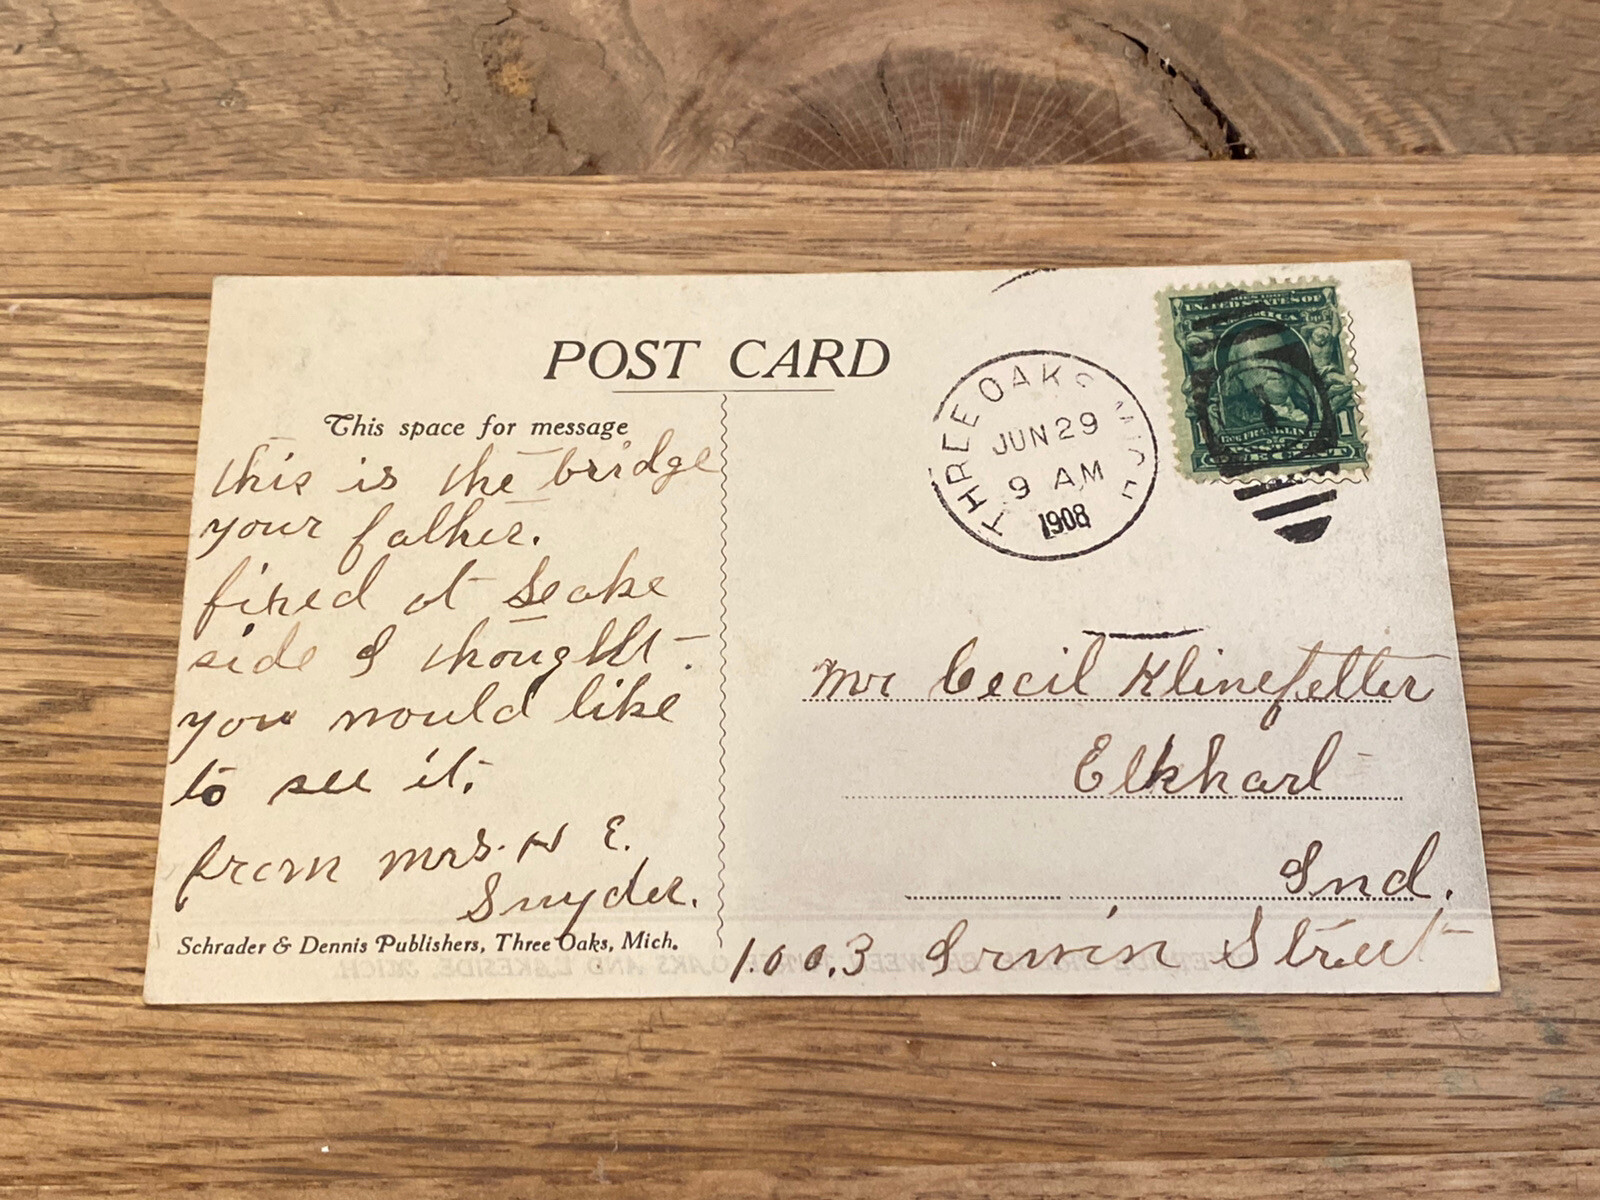 POST CARD
This space for message
this is the bridge
your father.
fired at Leake
side I thought
you would like
to see it.
from Mrs. H E.
Snyder.
Schrader & Dennis Publishers, Three Oaks, Mich.
THREE OAKS MICH
JUN 29
9 AM
1908
UNITED STATES OF
AMERICA
1 FRANKLIN 1
ONE CENT
Mr Cecil Klinefelter
Elkhart
Ind.
1003 Irwin Street
OAKS AND LAKESIDE, MICH.